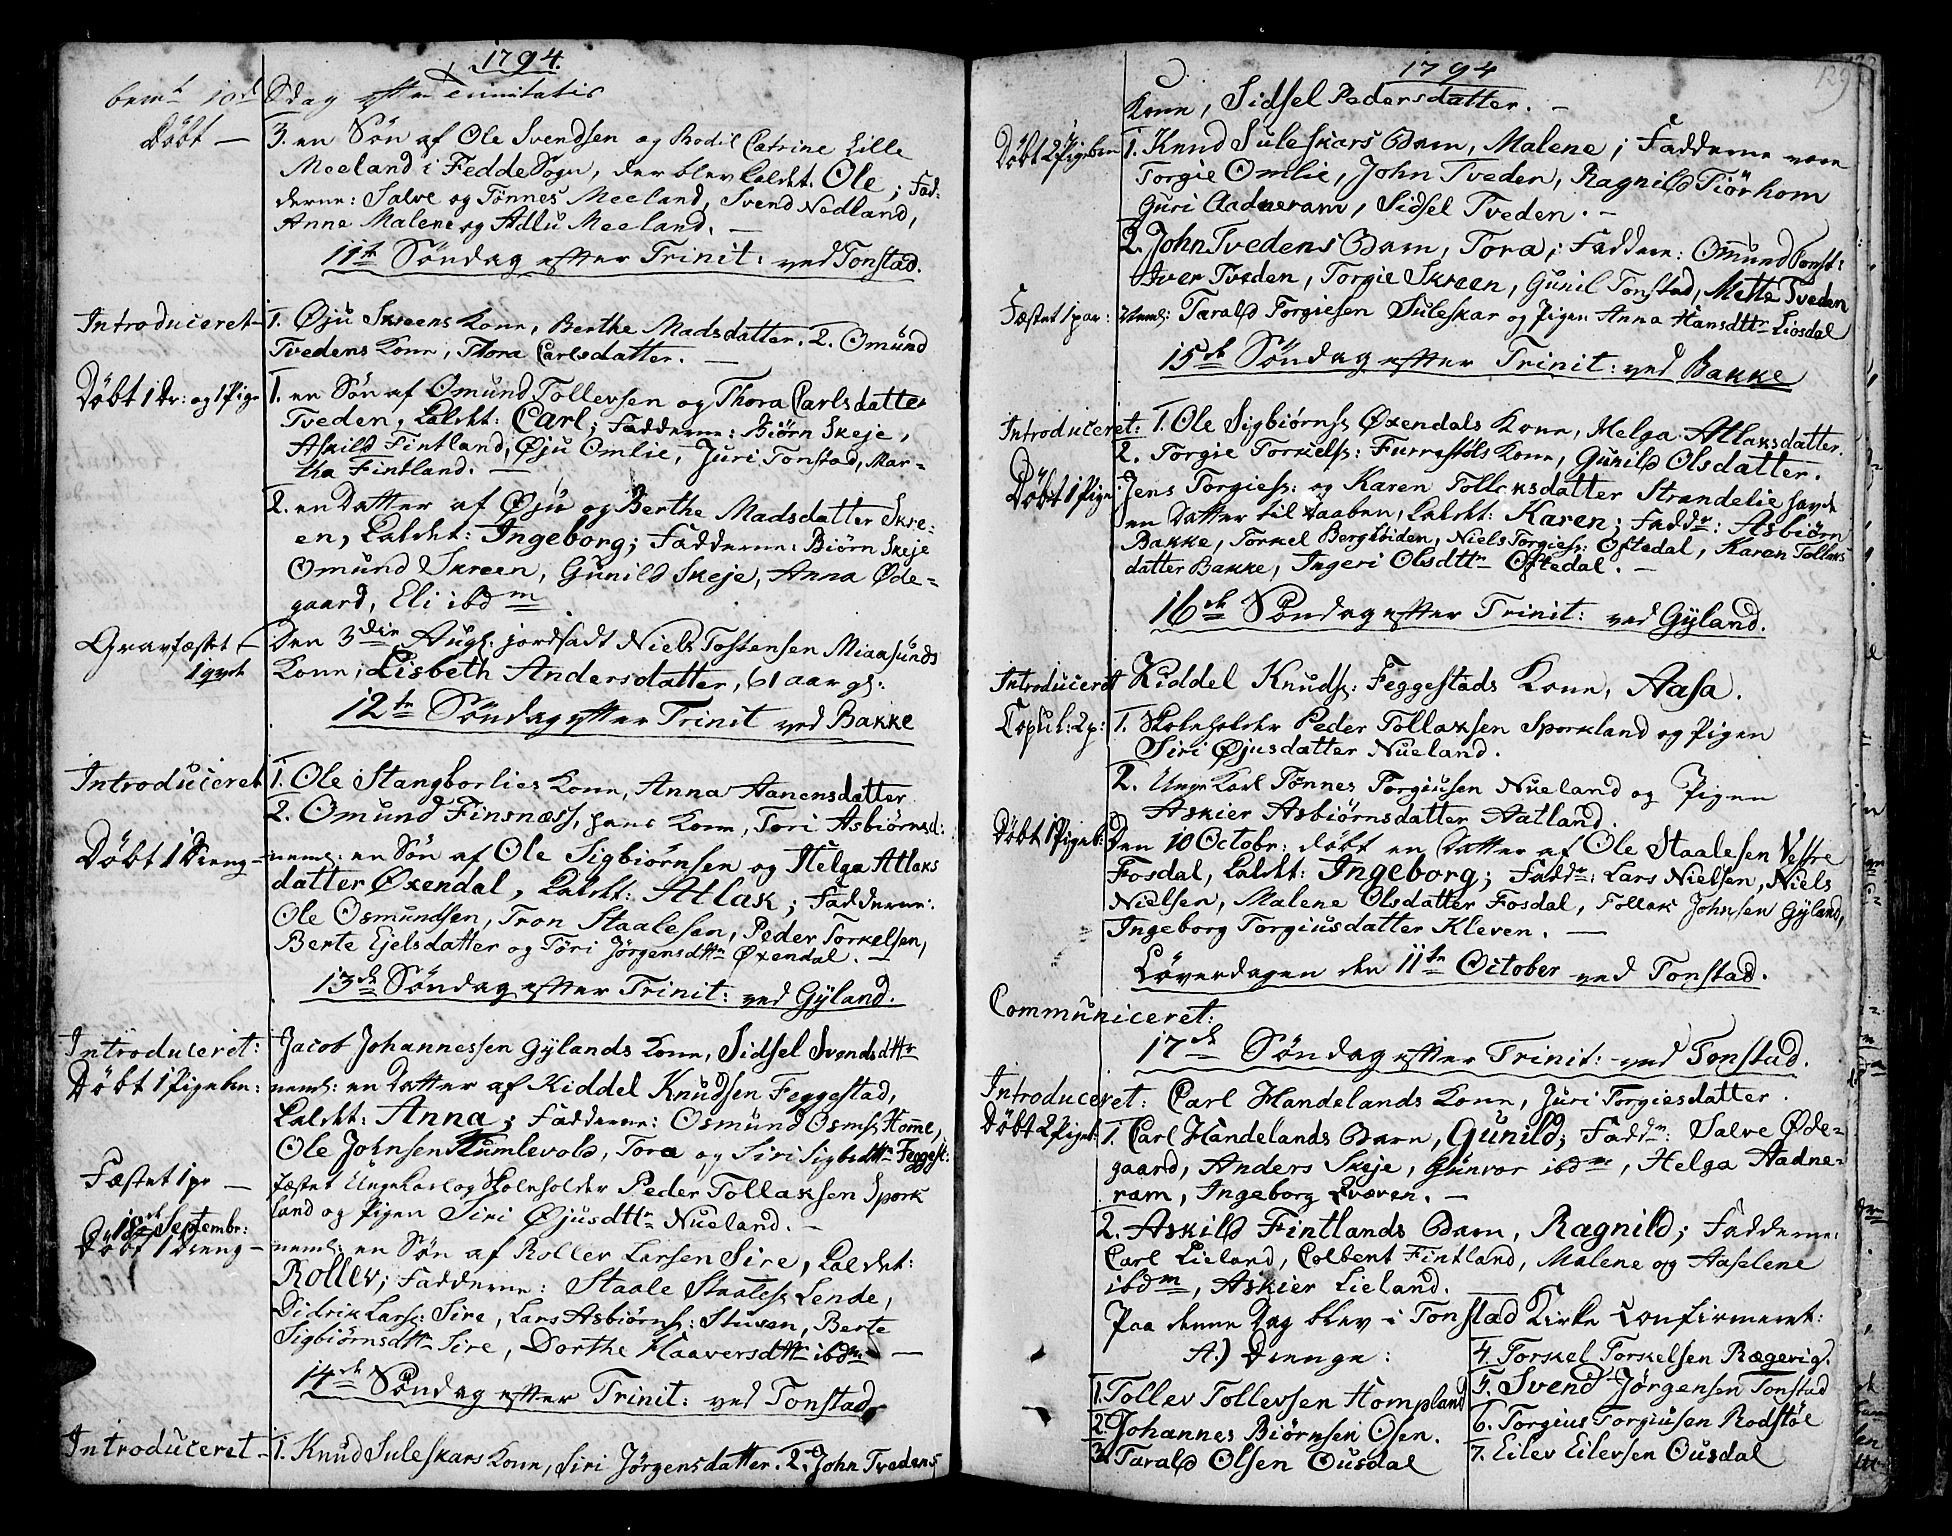 1794.
bem.t 10d Sdag efter Trinitatis
Døbt — 3. en Søn af Ole Svendsen og Bodil Catrine Lille
Meeland i Fedde Sogn, der blev kaldet Ole; Fad-
derne: Salve og Tønnes Meeland, Svend Nedland,
Anne Malene og Adlu Meeland. —
11te Søndag efter Trinit: ved Tonstad.
Introduceret — 1. Øju Skreens Kone, Berthe Madsdatter. 2. Omund
Tvedens Kone, Thora Carlsdatter. —
Døbt 1 Dr: og 1 Pige 1. en Søn af Omund Tollevsen og Thora Carlsdatter
Tveden, kaldet: Carl; Fadderne: Biörn Skeje,
Askild Fintland, Øju Omlie, Juri Tonstad, Mar-
tha Fintland. —
2. en Datter af Øju og Berthe Madsdatter Skre-
en, kaldet: Ingeborg; Fadderne: Biörn Skeje
Omund Skreen, Gunild Skeje, Anna Øde-
gaard, Eli ibdm
Gravfæstet — Den 3die Aug: jordfæstet Niels Tostensen Miaasunds
1 qvd Kone, Lisbeth Andersdatter, 61 aar gl:
12te Søndag efter Trinit ved Bakke
Introduceret 1. Ole Stangborlies Kone, Anna Aanensdatter
2. Omund Finsnæss, hans Kone, Tori Asbiørnsd:
Døbt 1 Dreng — neml: en Søn af Ole Sigbiørnsen og Helga Atlaks
datter Øxendal, kaldet: Atlak; Fadderne:
Ole Osmundsen, Tron Staalesen, Peder Torkelsen,
Berte Ejelsdatter og Töri Jörgensdttr Øxendal. —
13de Søndag efter Trinit: ved Gyland.
Introduceret: Jacob Johannessen Gylands Kone, Sidsel Svendsdttr
Døbt 1 Pigebn: neml: en Datter af Kiddel Knudsen Feggestad,
kaldet: Anna; Fadderne: Osmund Osms: Homme,
Ole Johnsen Kumlevold, Tora og Siri Sigbdttr Feggest:
Fæstet 1 pr — fæstet Ungekarl og Skoleholder Peder Tollaksen Spork
land og Pigen Siri Øjusdttr Nueland. —
18d Septembr:
Døbt 1 Dreng — neml: en Søn af Rollev Larsen Sire, kaldet:
Rollev; Fadderne: Staale Staales: Lende,
Didrik Lars: Sire, Lars Asbiörns: Stuven, Berte
Sigbiörnsdttr Sire, Dorthe Haaversdttr ibdm —
14de Søndag efter Trinit: ved Tonstad
Introduceret — 1. Knud Suleskars Kone, Siri Jörgensdatter. 2. John Tvedens
1794
129
Kone, Sidsel Pedersdatter. —
Døbt 2 Pigeben 1. Knud Suleskars Barn, Malene; Fadderne vare
Torgie Omlie, John Tveden, Ragnild Tiörhom
Guri Aadneram, Sidsel Tveden. —
2. John Tvedens Barn, Tora; Faddere: Omund Tonst:
Iver Tveden, Torgie Skreen, Gunil Tonstad, Mette Tveden
Fæstet 1 par: neml: Tarald Torgiesen Suleskar og Pigen Anna Hansdttr Liosdal
15de Søndag efter Trinit: ved Bakke
Introduceret: 1. Ole Sigbiørns: Øxendals Kone, Helga Atlaksdatter.
2. Torgie Torkels: Furrestøls Kone, Gunild Olsdatter.
Døbt 1 Pige: Jens Torgies: og Karen Tollaksdatter Strandelie havde
en Datter til Daaben, kaldet: Karen; Fadd:r Asbiørn
Bakke, Torkel Bergsöiden, Niels Torgies: Oftedal, Karen Tollaks
datter Bakke, Ingeri Olsdttr Oftedal. —
16de Søndag efter Trinit: ved Gyland.
Introduceret Kiddel Knuds: Feggestads Kone, Aasa.
Copul: 2 p: 1. Skoleholder Peder Tollaksen Sporkland og Pigen
Siri Øjusdatter Nueland.
2. Unge Karl Tønnes Torgiusen Nueland og Pigen
Askier Asbiörnsdatter Aatland.
Døbt 1 Pigeb: Den 10 Octobr: døbt en Datter af Ole Staalesen Vestre
Fosdal, kaldet: Ingeborg; Fadd:r Lars Nielsen, Niels
Nielsen, Malene Olsdatter Fosdal, Tollak Johnsen Gyland,
Ingeborg Torgiusdatter Kleven. —
Løverdagen den 11te October ved Tonstad.
Communiceret:
17de Søndag efter Trinit: ved Tonstad.
Introduceret: Carl Handelands Kone, Juri Torgiesdatter.
Døbt 2 Piger: 1. Carl Handelands Barn, Gunild; Fadd:r Salve Øde-
gaard, Anders Skeje, Gunvor ibdm, Helga Aadne-
ram, Ingeborg Kvæven. —
2. Askild Fintlands Barn, Ragnild; Fadderne:
Carl Lieland, Colbent Fintland, Malene og Aaselene
ibdm, Askier Lieland.
Paa denne Dag blev i Tonstad Kirke Confirmeret:
A.) Drenge:
1. Tollev Tollevsen Hompland
2. Johannes Biörnsen Osen.
3. Tarald Olsen Ousdal
4. Torkel Torkelsen Rægevig.
5. Svend Jörgensen Tonstad
6. Torgius Torgiusen Rodstöl
7. Eilev Eilevsen Ousdal